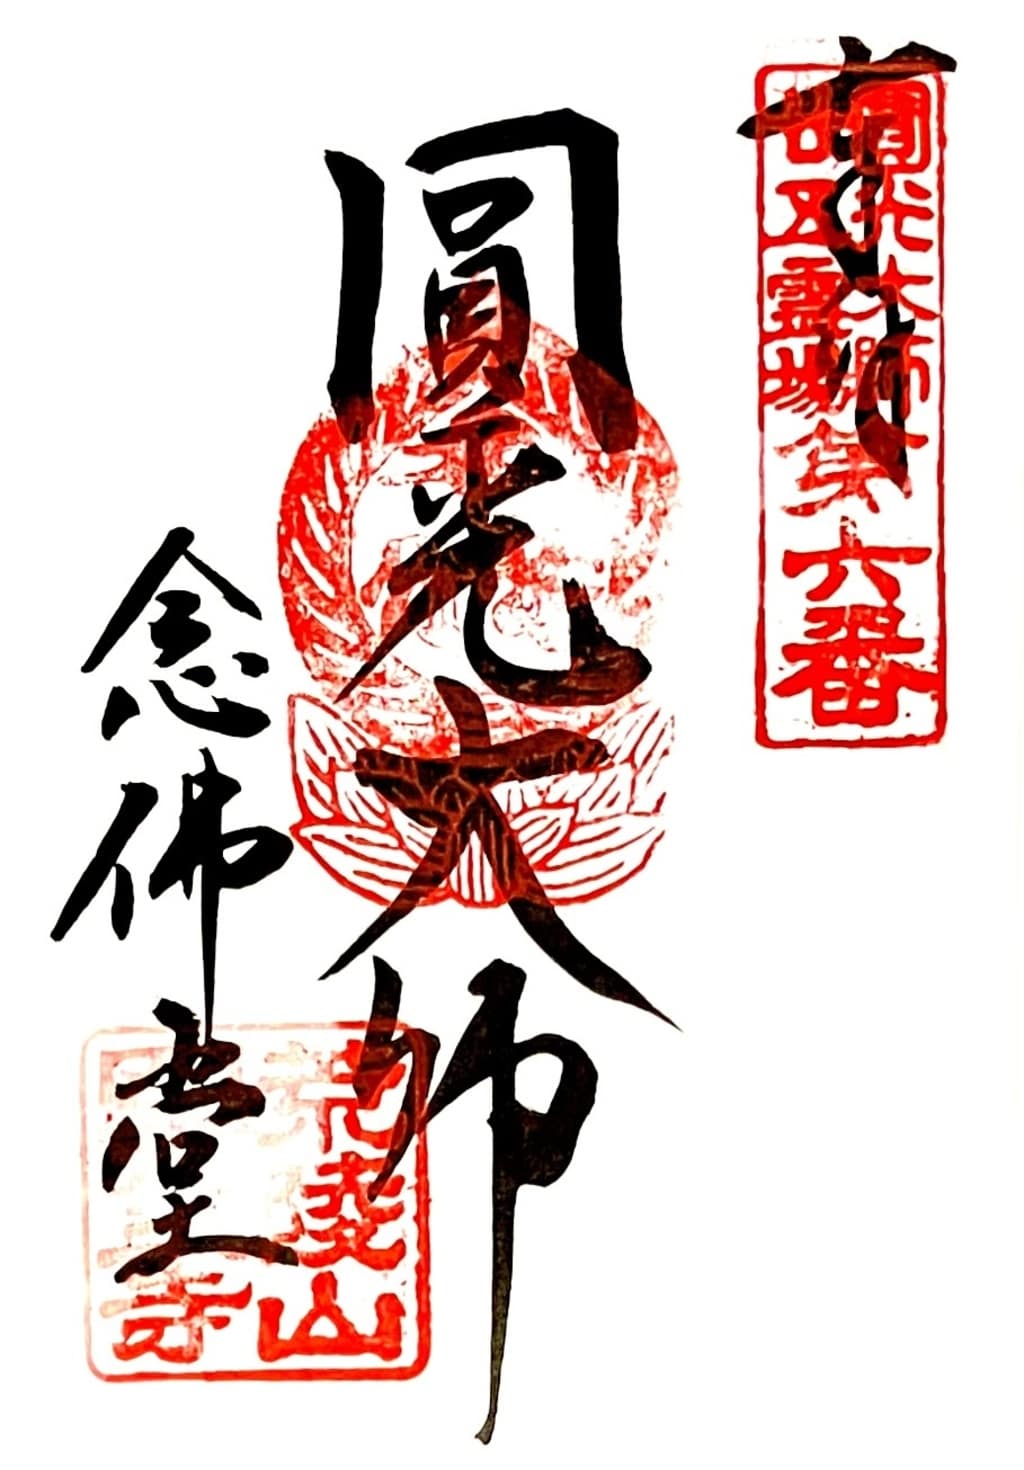 奉拝
圓光大師
廿五霊場第六番
圓光大師
念佛堂
老婆山
寺